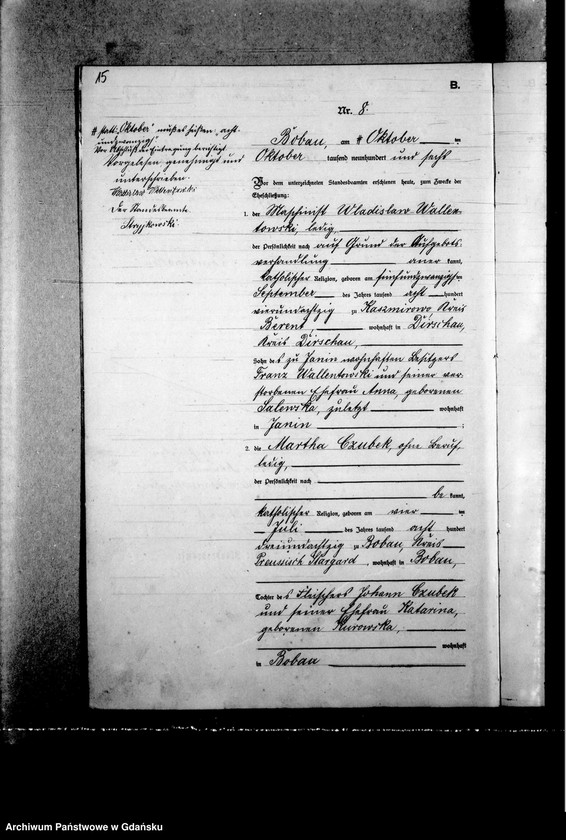 15
B.
Nr. 8.
# statt „Oktober" muß es heißen „acht-
undzwanzig"
Vor Abschluß der Eintragung berichtigt.
Vorgelesen, genehmigt und
unterschrieben.
Wladislaw Wallentowski
Der Standesbeamte.
Bobau, am # Oktober ten
Oktober tausend neunhundert und sechs
Vor dem unterzeichneten Standesbeamten erschienen heute, zum Zwecke der
Eheschließung:
1. der Maschinist Wladislaw Wallen-
towski, ledig,
der Persönlichkeit nach auf Grund der Aufgebots-
verhandlung anerkannt,
katholischer Religion, geboren am fünfundzwanzigsten
September des Jahres tausend acht hundert
vierundachtzig zu Kasimirowo Kreis
Berent, wohnhaft in Dirschau,
Kreis Dirschau,
Sohn des zu Janin wohnhaften Besitzers
Franz Wallentowski und seiner ver-
storbenen Ehefrau Anna, geborenen
Salewska, zuletzt wohnhaft
in Janin ;
2. die Martha Czubek, ohne Beruf,
ledig,
der Persönlichkeit nach
be kannt,
katholischer Religion, geboren am vier ten
Juli des Jahres tausend acht hundert
dreiundachtzig zu Bobau, Kreis
Preussisch Stargard, wohnhaft in Bobau,
Tochter des Fleischers Johann Czubek
und seiner Ehefrau Katarina,
geborenen Kurowska,
wohnhaft
in Bobau
Archiwum Państwowe w Gdańsku